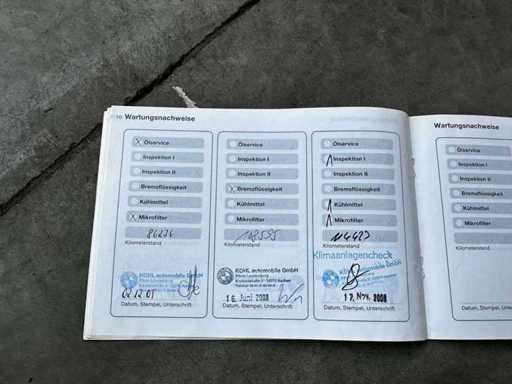 10 Wartungsnachweise
Ölservice
Inspektion I
Inspektion II
Bremsflüssigkeit
Kühlmittel
Mikrofilter
Kilometerstand
KOHL automobile GmbH
Datum, Stempel, Unterschrift
Ölservice
Inspektion I
Inspektion II
Bremsflüssigkeit
Kühlmittel
Mikrofilter
Kilometerstand
KOHL automobile GmbH
16. Juni 2008
Datum, Stempel, Unterschrift
Ölservice
Inspektion I
Inspektion II
Bremsflüssigkeit
Kühlmittel
Mikrofilter
Kilometerstand
Klimaanlagencheck
automobile GmbH
17. Nov. 2008
Datum, Stempel, Unterschrift
Wartungsnachweise
Ölservice
Inspektion I
Inspektion II
Bremsflüssigkeit
Kühlmittel
Mikrofilter
Kilometerstand
Datum, Stempel, Unterschrift